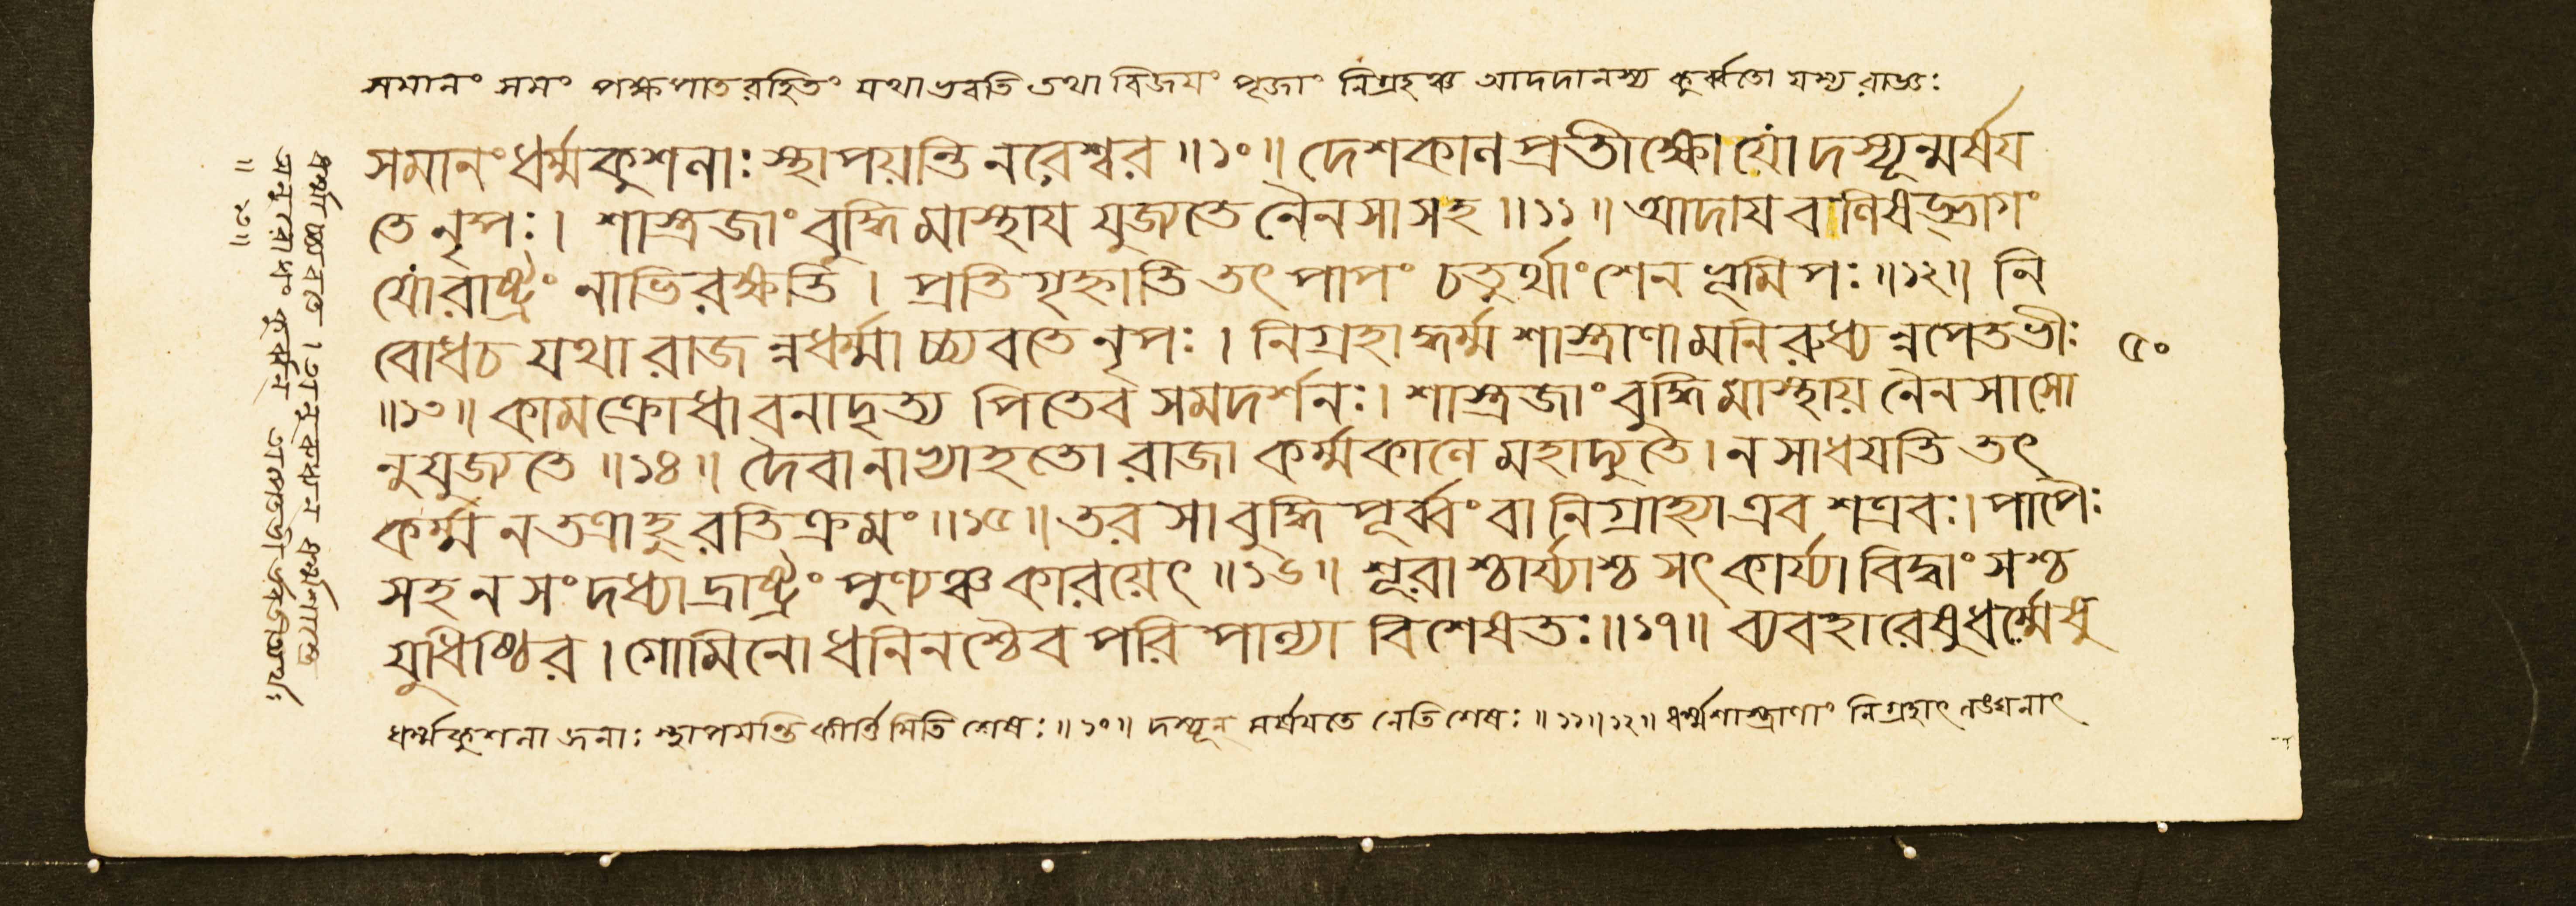 সমানং সমং পক্ষপাতরহিতং যথা ভবতি তথা বিজয়ং পূজাং নিগ্রহঞ্চ আদদানস্য কুর্ব্বতো যস্য রাজ্ঞঃ
সমানং ধর্ম্মকুশলাঃ স্থাপয়ন্তি নরেশ্বর ॥১০॥ দেশকালপ্রতীক্ষো যো দস্যূন্মর্ষয
তে নৃপঃ। শাস্ত্রজাং বুদ্ধিমাস্থায যুজ্যতে নৈনসা সহ ॥১১॥ আদায বলিষড্ভাগং
যো রাষ্ট্রং নাভিরক্ষতি। প্রতিগৃহ্নাতি তৎ পাপং চতুর্থাংশেন ভূমিপঃ ॥১২॥ নি
বোধ চ যথা রাজন্নধর্ম্মাচ্চ্যবতে নৃপঃ। নিগ্রহাদ্ধর্ম্মশাস্ত্রাণামনিরুধ্যন্নপেতভীঃ ৫০
॥১৩॥ কামক্রোধাবনাদৃত্য পিতেব সমদর্শনঃ। শাস্ত্রজাং বুদ্ধিমাস্থায় নৈনসা সো
নুযুজ্যতে ॥১৪॥ দৈবেনাভ্যাহতো রাজা কর্ম্মকালে মহাদ্যুতে। ন সাধয়তি তৎ
কর্ম্ম ন তত্রাহুরতিক্রমং ॥১৫॥ তরসা বুদ্ধিপূর্ব্বং বা নিগ্রাহ্যা এব শত্রবঃ। পাপৈঃ
সহ ন সংদধ্যাদ্রাষ্ট্রং পুণ্যঞ্চ কারয়েৎ ॥১৬॥ শূরাশ্চার্য্যাশ্চ সৎকার্য্যা বিদ্বাংসশ্চ
যুধিষ্ঠির। গোমিনো ধনিনশ্চৈব পরিপাল্যা বিশেষতঃ ॥১৭॥ ব্যবহারেষু ধর্ম্মেষু
ধর্ম্মকুশলা জনাঃ স্থাপয়ন্তি কীর্ত্তিমিতি শেষঃ ॥১০॥ দস্যূন্ মর্ষয়তে নেতি শেষঃ ॥১১॥১২॥ ধর্ম্মশাস্ত্রাণাং নিগ্রহাৎ লঙ্ঘনাৎ
ধর্ম্মাচ্চ্যবতে। ধর্ম্মশাস্ত্র
॥১৩॥